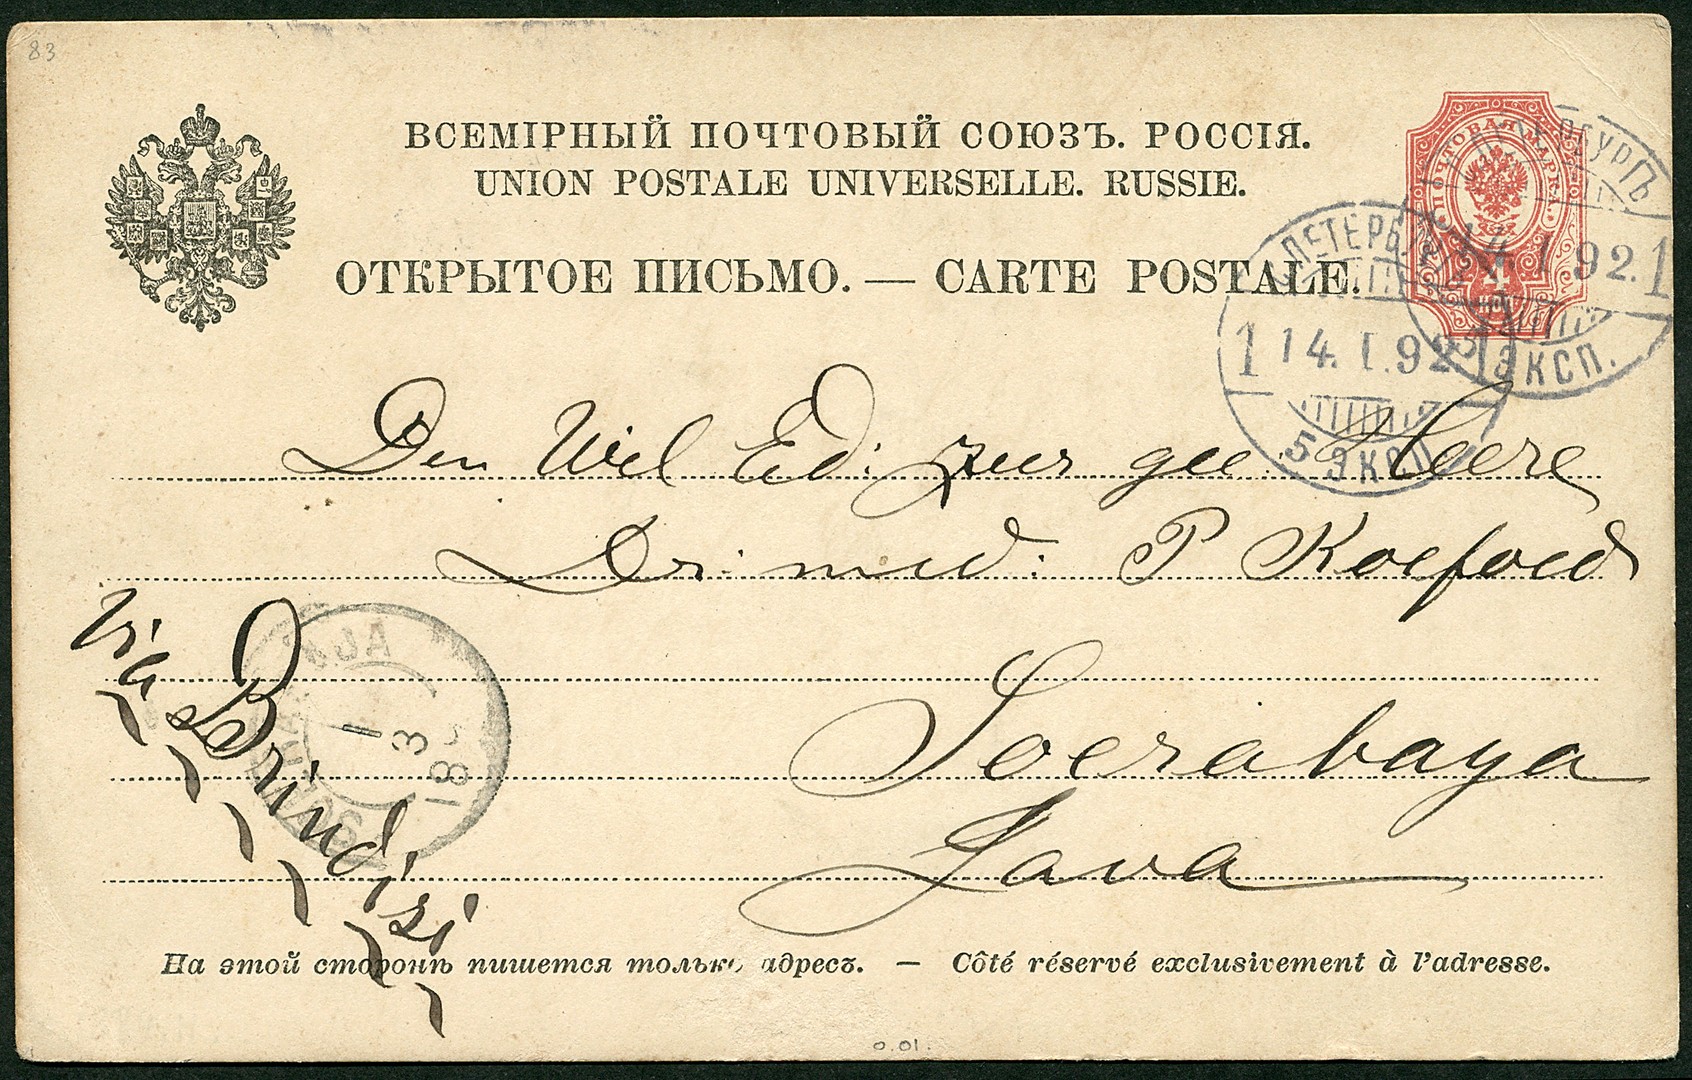 83
ВСЕМІРНЫЙ ПОЧТОВЫЙ СОЮЗЪ. РОССІЯ.
UNION POSTALE UNIVERSELLE. RUSSIE.
ОТКРЫТОЕ ПИСЬМО. — CARTE POSTALE.
ПОЧТОВАЯ МАРКА.
С.ПЕТЕРБУРГЪ
14.I.92.1
5 ЭКСП.
С.ПЕТЕРБ
1 14.I.92.1
5 ЭКСП.
Den Wel Ed: zeer gee: Heere
Dr: med: P Koefoed
Via Brindisi
1
3
Soerabaya
Java
На этой сторонѣ пишется только адресъ. — Côté réservé exclusivement à l'adresse.
0.01.